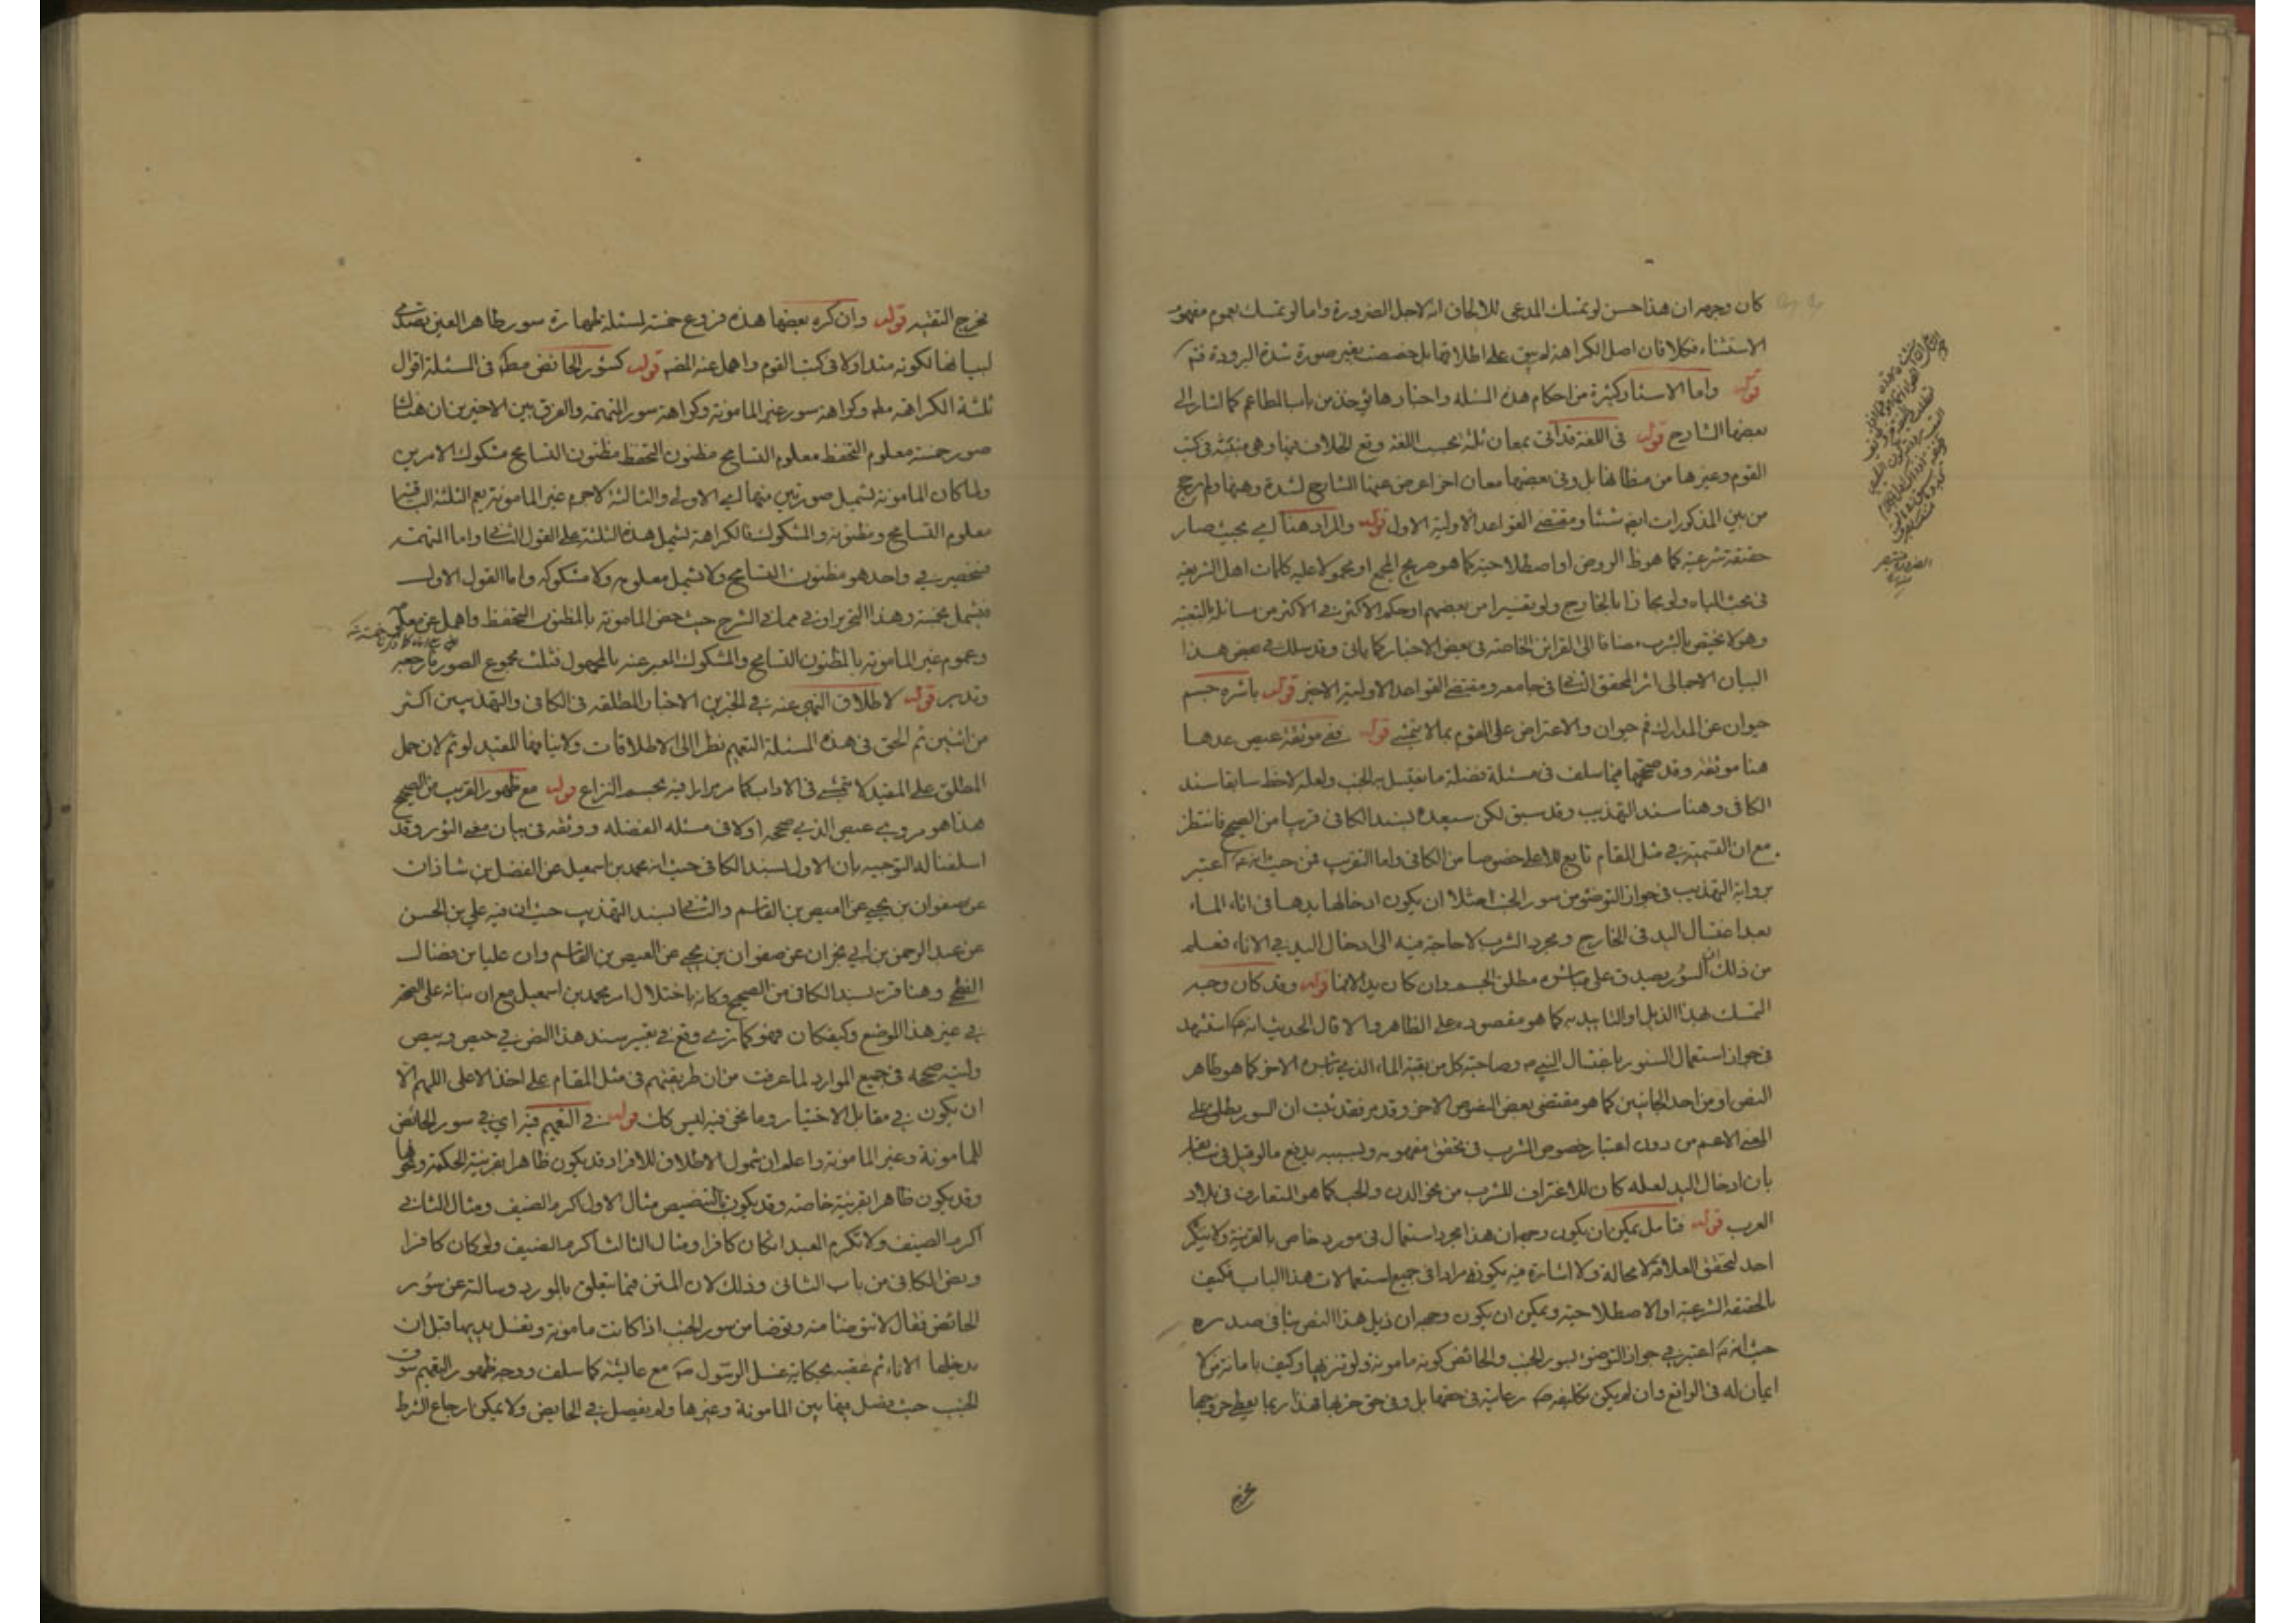 كان وجهه ان هذا حسن لو تمسك المدعى للالحاق انه لاجل الضرورة واما لو تمسك بعموم مفهوم
الاستثناء فكلا فان اصل الكراهة لم يبق على اطلاقها بل خصصت بغير صورة شدة البرودة فتم
قوله واما الاسئار وكثيرة من احكام هذه المسئلة واخبارها يؤخذ من باب المطاعم كما اشار الى
بعضها الشارح قوله فى اللغة قد اتى بمعان ثلثة بحسب اللغة وقع الخلاف فيها وهى منبثة فى كتب
القوم وغيرها من مظانها بل وفى بعضها معان اخر اعرض عنها الشارح لشدة وهنها ولم يرجح
من بين المذكورات ايضا شيئا ومقتضى القواعد الاولية الاول قوله والمراد هنا اى بحيث صار
حقيقة شرعية كما هو ظ الروض او اصطلاحية كما هو صريح المجمع او محمولا عليه كلمات اهل الشريعة
فى بحث المياه ولو مجازا بالخارج ولو تفسيرا من بعضهم او حكم الاكثر فى الاكثر من مسائله بالتبعية
وهو لا يختص بالشرب مضافا الى القرائن الخاصة فى بعض الاخبار كما ياتى وقد سلك فى بعض هذا
البيان الاجمالى اثر المحقق الثانى فى جامعه ومقتضى القواعد الاولية الاخير قوله باشره جسم
حيوان عن المدارك فم حيوان والاعتراض على القوم بما لا يتمشى قوله ففى موثقة عيص عدها
هنا موثقة وقد صححها فيما سلف فى مسئلة فضلة ما يغتسل به الجنب ولعله لاحظ سابقا سند
الكافى وهنا سند التهذيب وقد سبق لكن سيعده بسند الكافى قريبا من الصحيح فانتظر
مع ان القسمية فى مثل المقام تابع للاعلى خصوصا من الكافى واما التقريب فمن حيث انه ع اعتبر
برواية التهذيب فى جواز التوضؤ من سور الجنب مثلا ان يكون ادخالها يدها فى اناء الماء
بعد اغتسال اليد فى الخارج ومجرد الشرب لا حاجة فيه الى ادخال اليد فى الاناء فعلم
من ذلك ان السؤر يصدق على مباشرة مطلق الجسم وان كان يد الانسان قوله وقد كان وجه
التمسك بهذا الذيل او التاييد به كما هو مقصوده على الظاهر والا قال الحديث انه ع استشهد
فى جواز استعمال السئور باغتسال النبى ص وصاحبته كل من بقية الماء الذى باشره الاخر كما هو ظاهر
النص او من احد الجانبين كما هو مقتضى بعض النصوص الاخر وقد مر فقد ثبت ان السور يطلق على
المعنى الاعم من دون اعتبار خصوص الشرب فى تحقق مفهومه وبسببه يدفع ما لو قيل فى
بان ادخال اليد لعله كان للاغتراف للشرب من نحو الدن والحب كما هو المتعارف فى بلاد
العرب قوله فتامل يمكن ان يكون وجهه ان هذا مجرد استعمال فى مورد خاص بالقرينة ولا ينكر
احد لتحقق العلاقة لا محالة ولا اشارة فيه بكونه مرادا فى جميع استعمالات هذا الباب فكيف
بالحقيقة الشرعية او الاصطلاحية ويمكن ان يكون وجهه ان ذيل هذا النص ينافى صدره
حيث انه ع اعتبر فى جواز التوضؤ بسور الجنب والحائض كونه مامونة ولو تنزيها وكيف بامانة من لا
ايمان له فى الواقع وان لم يكن تكليفه ص رعايته فى حقها بل وفى حق حزبها فهذا ربما يعطى خروجها
يخرج التقية قوله وان كره بعضها هذه فروع خمسة لمسئلة طهارة سور طاهر العين تصدى
لبيانها لكونه متداولا فى كتب القوم واهمل عنه المص قوله كسؤر الحائض مطه فى المسئلة اقوال
ثلثة الكراهة مطه وكراهة سور غير المامونة وكراهة سور المتهمة والفرق بين الاخيرين ان هناك
صور خمسة معلوم التحفظ معلوم التسامح مظنون التحفظ مظنون التسامح مشكوك الامرين
ولما كان المامونة تشمل صورتين منها اى الاولى والثالثة لا جرم غير المامونة يعم الثلثة الباقية
معلوم التسامح ومظنونه والمشكوك فالكراهة تشمل هذه الثلثة على القول الثانى واما المتهمة
فتنحصر فى واحد هو مظنون التسامح ولا تشمل معلومه ولا مشكوكه واما القول الاول
فيشمل الخمسة وهذا التحرير اولى مما فى الشرح حيث خص المامونة بالمظنون التحفظ واهمل عن معلومه
وعموم غير المامونة بالمظنون التسامح والمشكوك المعبر عنه بالمجهول فثلث مجموع الصور فارجعه
وتدبر قوله لاطلاق النهى عنه فى الخبرين الاخبار المطلقة فى الكافى والتهذيبين اكثر
من اثنين ثم الحق فى هذه المسئلة التعميم نظرا الى الاطلاقات ولا ينافيها المقيد لو تم لان حمل
المطلق على المقيد لا يتمشى فى الاداب كما مر مرارا بل فيه يحسم النزاع قوله مع ظهور القريب من الصحيح
هذا هو مروى عيص الذى صححه اولا فى مسئلة الفضلة ووثقه فى بيان معنى السؤر وقد
اسلفنا له التوجيه بان الاول لسند الكافى حيث انه محمد بن اسمعيل عن الفضل بن شاذان
عن صفوان بن يحيى عن العيص بن القاسم والثانى لسند التهذيب حيث ان فيه على بن الحسن
عن عبد الرحمن بن ابى نجران عن صفوان بن يحيى عن العيص بن القاسم وان عليا بن فضال
الفطحى وهنا قربه لسند الكافى من الصحيح وكانه باختلال امر محمد بن اسمعيل مع ان بنائه على
فى غير هذا الموضع وكيف كان فهو كما ترى وقع فى تعبير سند هذا النص فى حيص وبيص
وليته صححه فى جميع الموارد لما عرفت من ان طريقتهم فى مثل المقام على اخذ الاعلى اللهم الا
ان يكون فى مقابل الاختيار وما نحن فيه ليس كك قوله فى التعميم فيه اى فى سور الحائض
للمامونة وغير المامونة واعلم ان شمول الاطلاق للافراد قد يكون ظاهرا بقرينة الحكمة ونحوها
وقد يكون ظاهرا بقرينة خاصة وقد يكون بالتنصيص مثال الاول اكرم الضيف ومثال الثانى
اكرم الضيف ولا تكرم العبد ان كان كافرا ومثال الثالث اكرم الضيف ولو كان كافرا
ونص الكافى من باب الثانى وذلك لان المتن فيما يتعلق بالمورد وسالته عن سؤر
الحائض فقال لا تتوضأ منه وتوضأ من سور الجنب اذا كانت مامونة وتغسل يديها قبل ان
يدخلها الاناء ثم عقبه بحكاية غسل الرسول ص مع عائشة كما سلف ووجه ظهور التعميم سوق
الجنب حيث فصل فيها بين المامونة وغيرها ولم يفصل فى الحايض ولا يمكن ارجاع الشرط